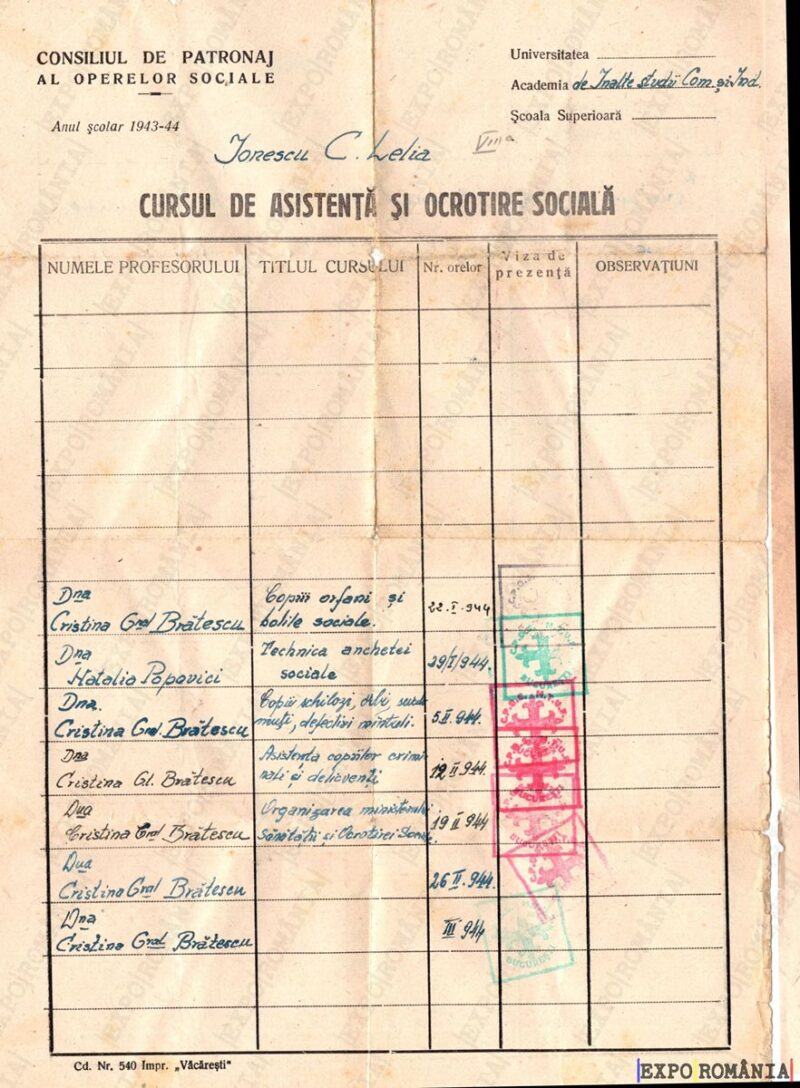 CONSILIUL DE PATRONAJ
AL OPERELOR SOCIALE
Universitatea
Academia de Inalte studii Com. și Ind.
Școala Superioară
Anul școlar 1943-44
Ionescu C. Lelia
VIII a
CURSUL DE ASISTENȚĂ ȘI OCROTIRE SOCIALĂ
NUMELE PROFESORULUI TITLUL CURSULUI Nr. orelor Viza de prezență OBSERVAȚIUNI
Dna Copiii orfani și
Cristina Gral Brătescu bolile sociale. 22.I.944
Dna Technica anchetei
Natalia Popovici sociale 29/I/944.
Dna. Copiii schilozi, orbi, surdo
Cristina Gral. Brătescu muți, defectivi mintali. 5 II 944.
Dna Asistența copiilor crimi
Cristina Gl. Brătescu nali și delicvenți 12 II 944.
Dna Organizarea ministerului
Cristina Gral Brătescu Sănătății și Ocrotirei Sociale. 19 II 944
Dna
Cristina Gral Brătescu 26 II. 944.
Dna
Cristina Gral Brătescu III 944
BUCUREȘTI
Cd. Nr. 540 Impr. „Văcărești"
EXPO ROMÂNIA